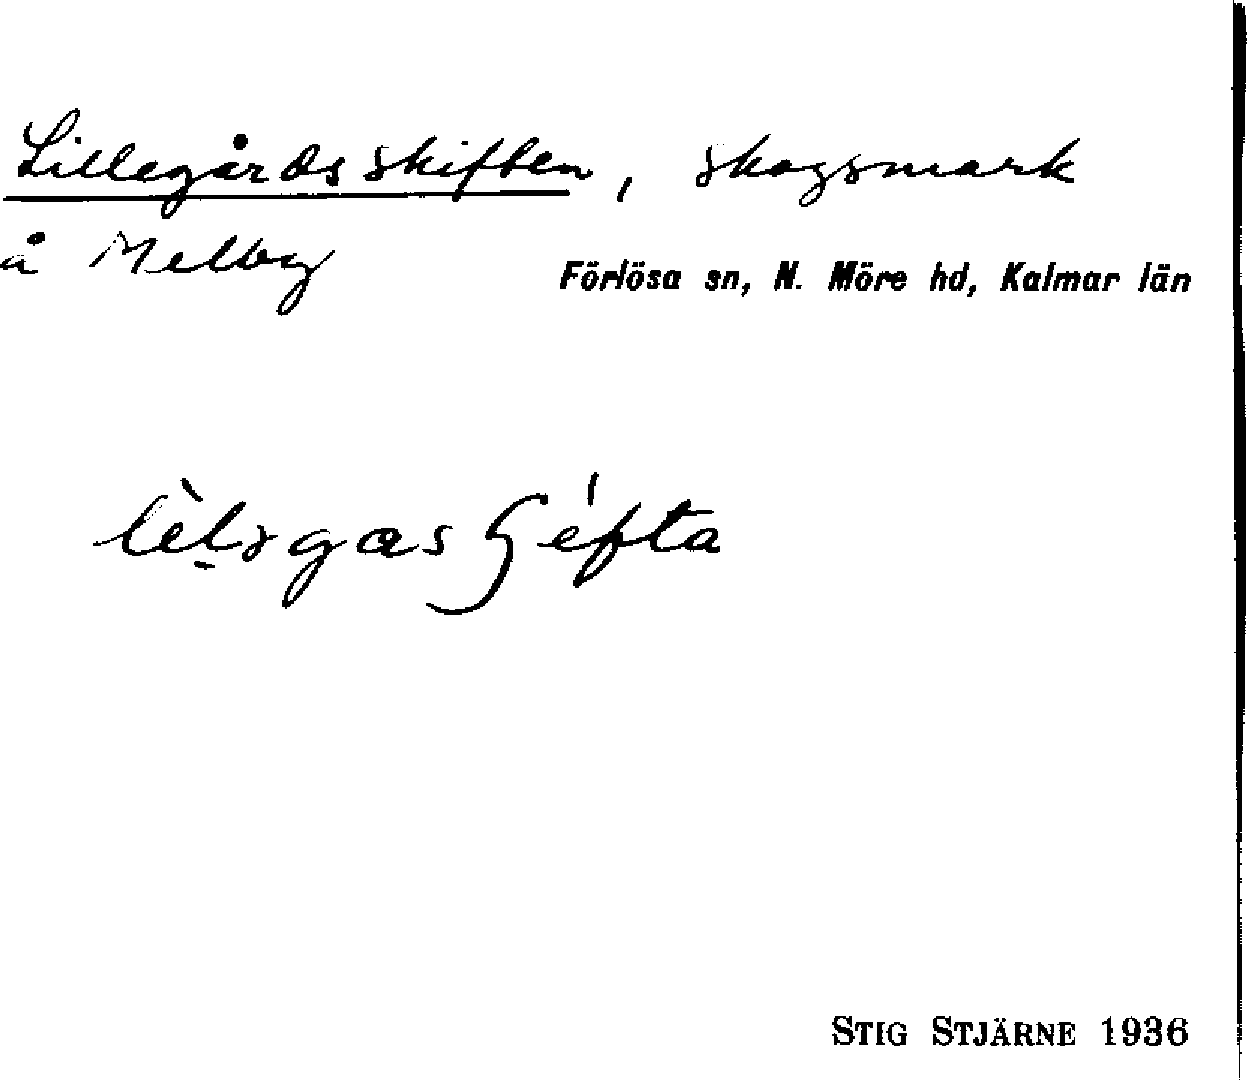 Lillegårdsskiften, skogsmark
å Melby
Förlösa sn, N. Möre hd, Kalmar län
STIG STJÄRNE 1936